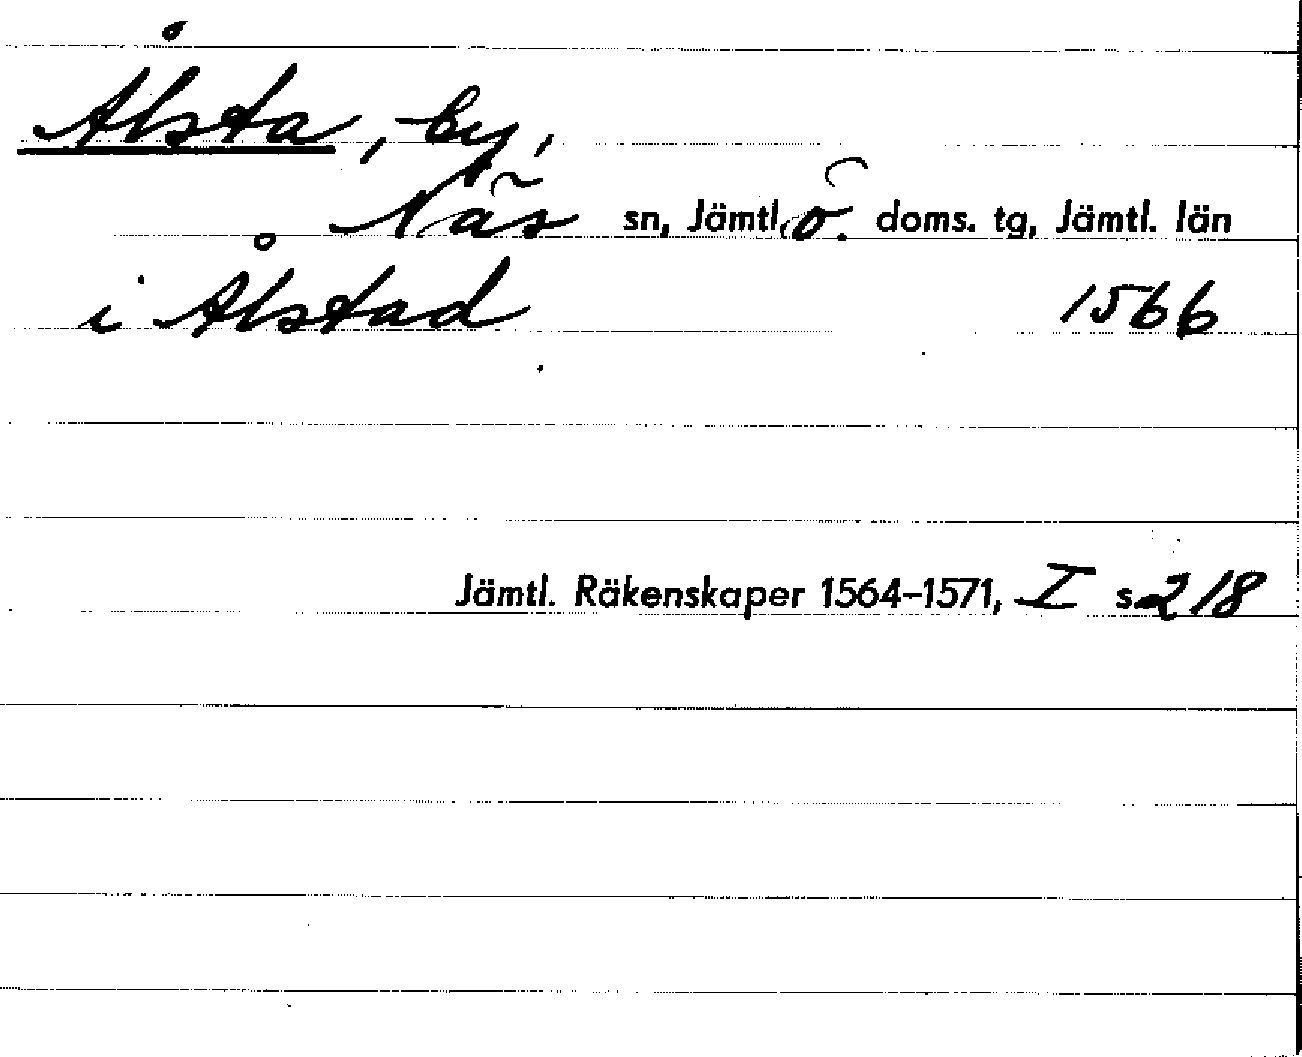 Ålsta, by,
Näs sn, Jämtl. ö. doms. tg, Jämtl. län
i Ålstad 1566
Jämtl. Räkenskaper 1564–1571, I s. 218